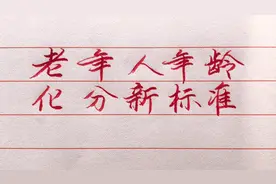 老年人年龄
化分新标准